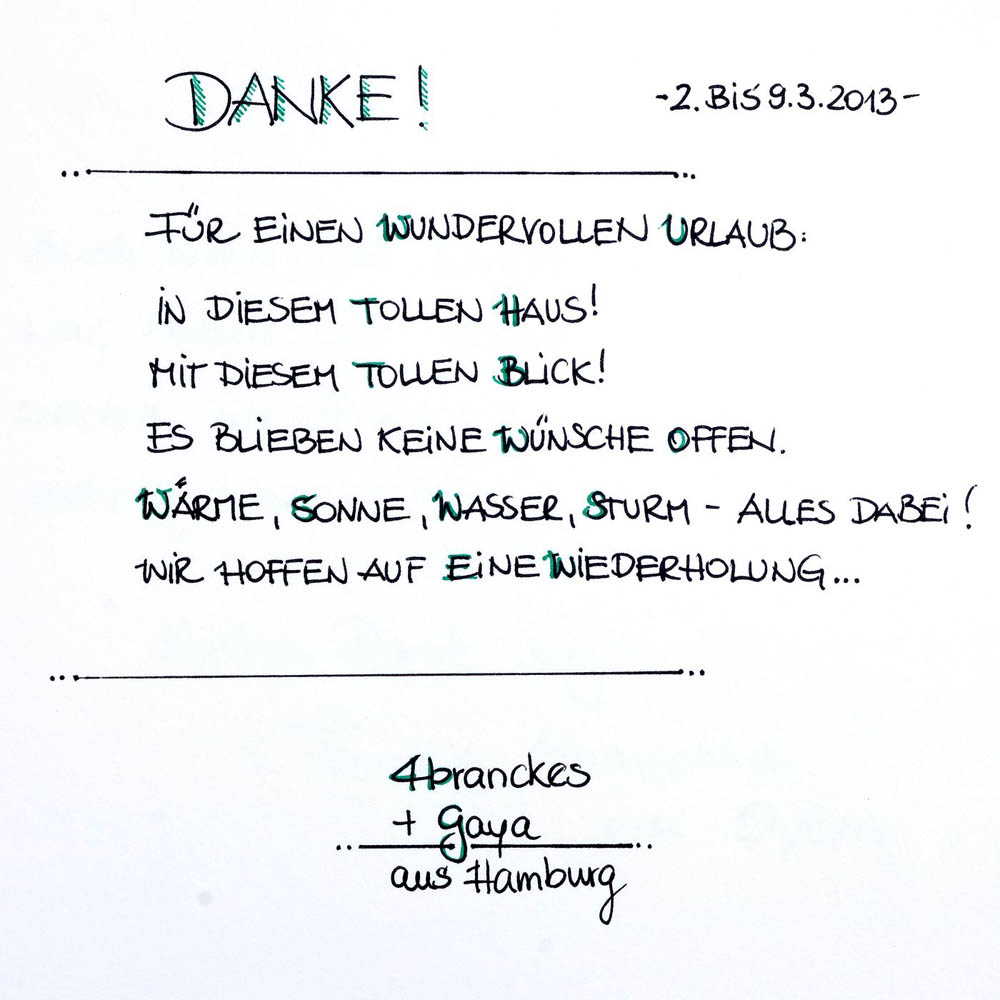 DANKE!
-2. BiS 9.3.2013-
FÜR EiNEN WUNDERVOLLEN URLAUB:
iN DiESEM TOLLEN HAUS!
MiT DiESEM TOLLEN BLiCK!
ES BLiEBEN KEiNE WÜNSCHE OFFEN.
WÄRME, SONNE, WASSER, STURM - ALLES DABEi!
WiR HOFFEN AUF EiNE WiEDERHOLUNG...
4branckes
+ Gaya
aus Hamburg